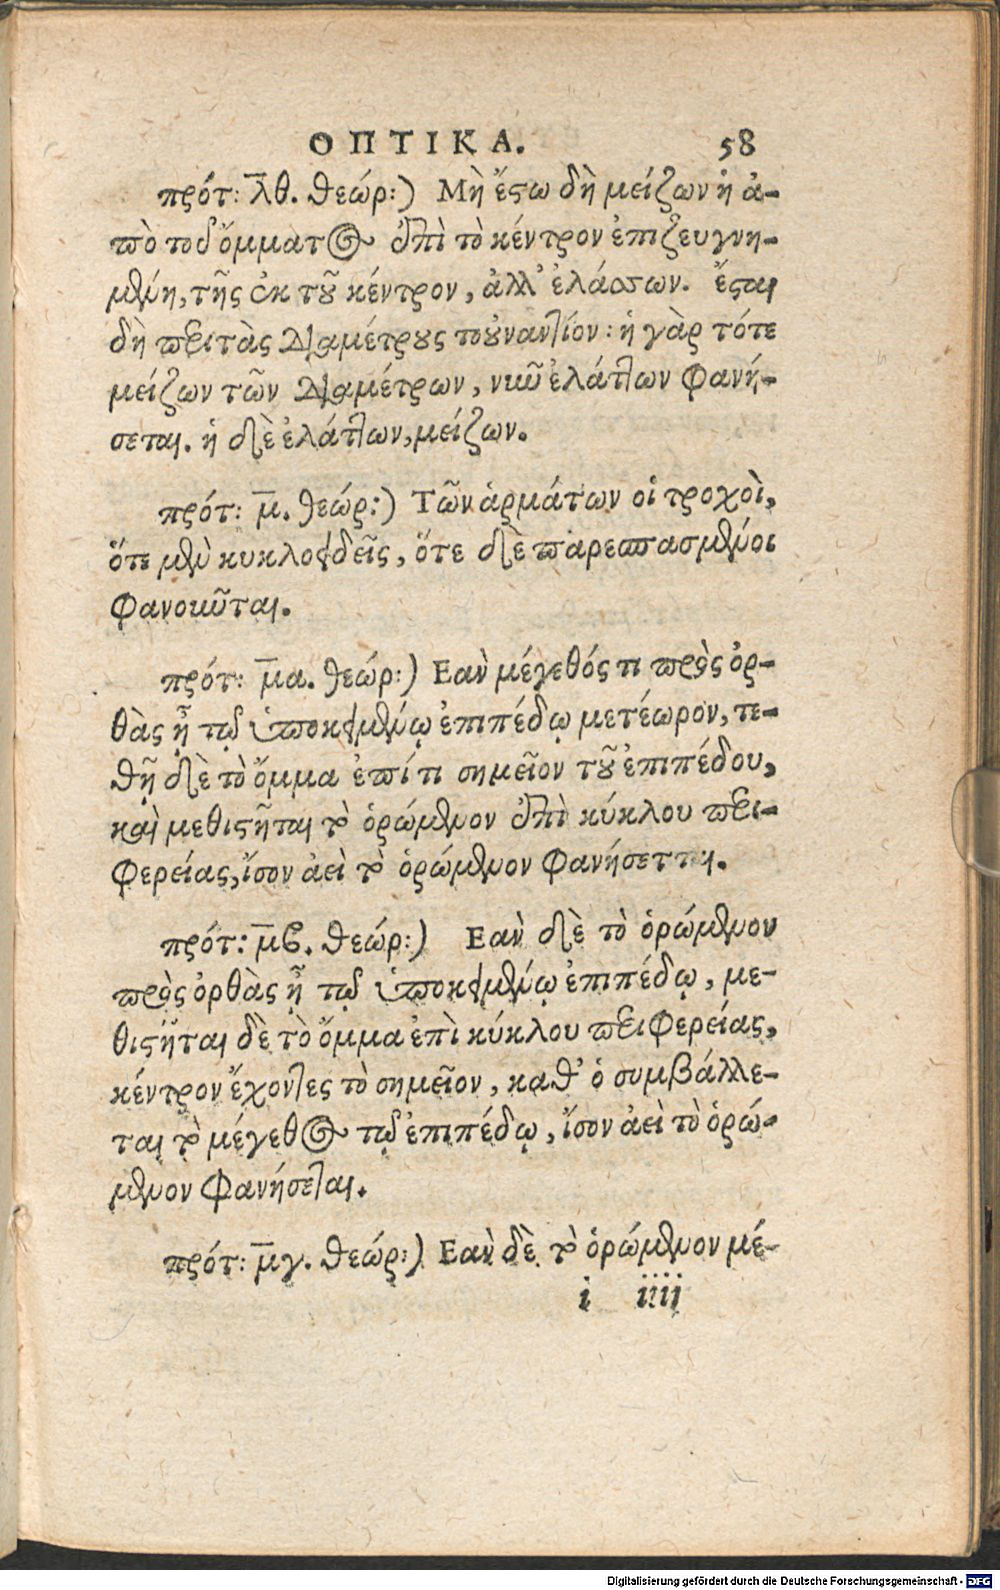 ΟΠΤΙΚΑ. 58
πρότ: λ̅θ. θεώρ:) Μὴ ἔστω δὴ μείζων ἡ ἀ-
πὸ τοῦ ὄμματος ἐπὶ τὸ κέντρον ἐπιζευγνη-
μένη, τῆς ἐκ τοῦ κέντρον, ἀλλ' ἐλάσσων. ἔσται
δὴ περὶ τὰς διαμέτρους τοὐναντίον: ἡ γὰρ τότε
μείζων τῶν διαμέτρων, νιῦ ἐλάττων φανή-
σεται. ἡ δὲ ἐλάττων, μείζων.
πρότ: μ̅. θεώρ:) Τῶν ἁρμάτων οἱ τροχοὶ,
ὅτε μὲν κυκλοειδεῖς, ὅτε δὲ παρεσπασμένοι
φανοιῦται.
πρότ: μ̅α. θεώρ:) Εαν μέγεθός τι πρὸς ὀρ-
θὰς ᾖ τῷ ὑποκειμένῳ ἐπιπέδῳ μετέωρον, τε-
θῇ δὲ τὸ ὄμμα ἐπί τι σημεῖον τοῦ ἐπιπέδου,
καὶ μεθιστῆται τὸ ὁρώμενον ἐπὶ κύκλου περι-
φερείας, ἴσον ἀεὶ τὸ ὁρώμενον φανήσεται.
πρότ: μ̅β. θεώρ:) Εαν δὲ τὸ ὁρώμενον
πρὸς ὀρθὰς ᾖ τῷ ὑποκειμένῳ ἐπιπέδῳ, με-
θιστῆται δὲ τὸ ὄμμα ἐπὶ κύκλου περιφερείας,
κέντρον ἔχοντες τὸ σημεῖον, καθ' ὁ συμβάλλε-
ται τὸ μέγεθος τῷ ἐπιπέδῳ, ἴσον ἀεὶ τὸ ὁρώ-
μενον φανήσεται.
πρότ: μ̅γ. θεώρ:) Εαν δὲ τὸ ὁρώμενον μέ-
i iiij
Digitalisierung gefördert durch die Deutsche Forschungsgemeinschaft - DFG